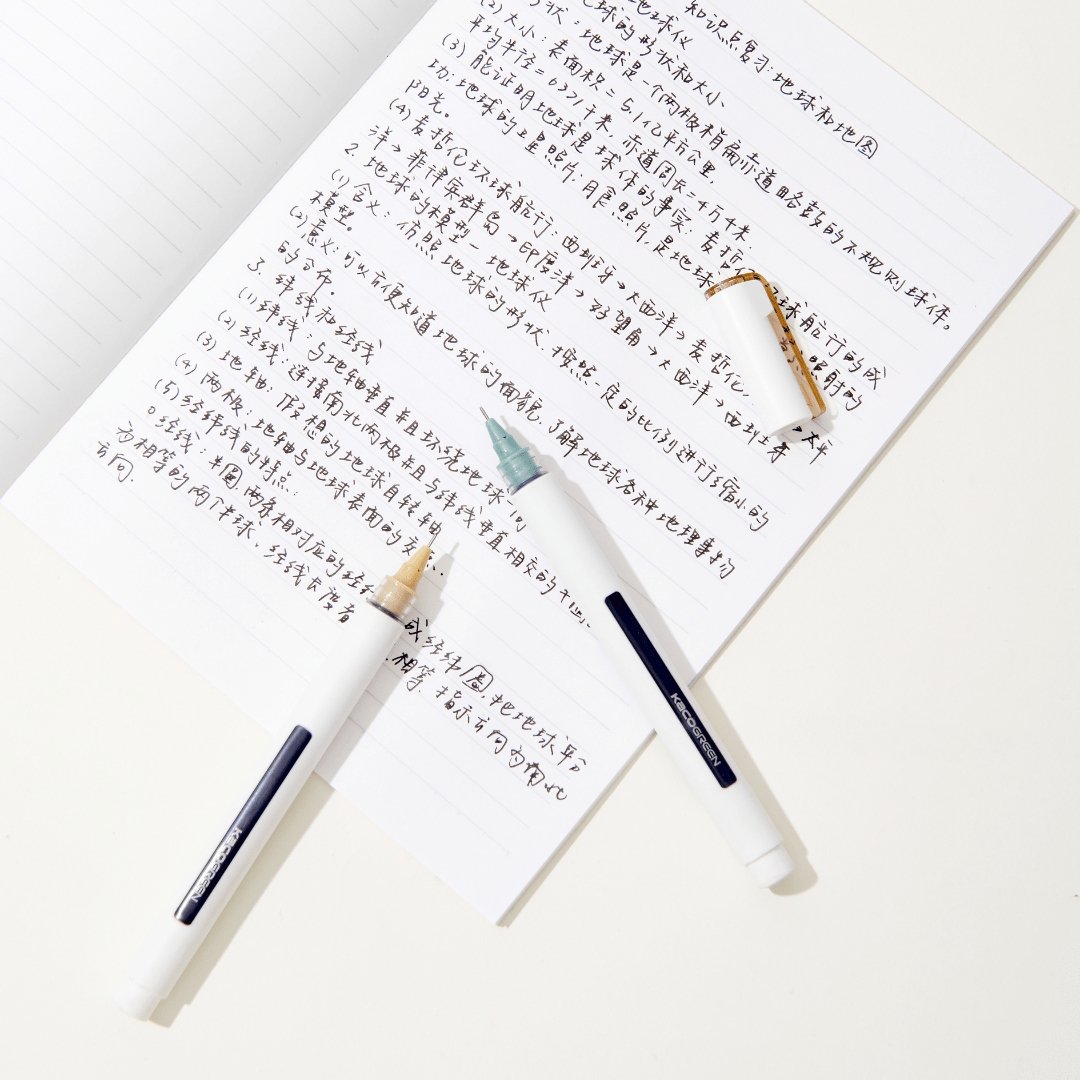 知识点复习:地球和地图
地球仪
球的形状和大小
状:地球是一个两极稍扁赤道略鼓的不规则球体。
(2)大小:表面积=5.1亿平方公里,
平均半径=6371千米,赤道周长=4万千米.
(3)能证明地球是球体的事实:麦哲伦 球航行的成
功;地球的卫星照片;月食照片,是地球 照射的
阳光。
(4)麦哲伦环球航行:西班牙→大西洋→麦哲伦 →太平
洋→菲津宾群岛→印度洋→好望角→大西洋→西班牙
2.地球的模型-地球仪
(1)含义:仿照地球的形状,按照一定的比例进行缩小的
模型。
(2)意义:可以方便知道地球的面貌,了解地球各种地理事物
的分布.
3.纬线和经线
(1)纬线:与地轴垂直并且环绕地球一
(2)经线:连接南北两极并且与纬线垂直相交的
(3)地轴:假想的地球自转轴
(4)两极:地轴与地球表面的交
(5)经纬线的特点:
经线:半圆,两条相对应的经 成经纬圈,把地球平分
为相等的两个半球,经线长度 相等,指示方向为南
方向.
KACOGREEN
KACOGREEN